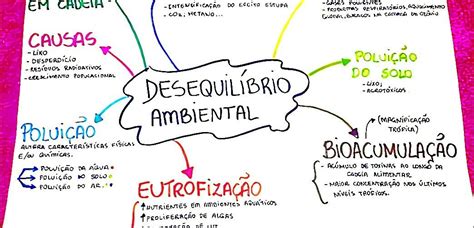 EM CADEIA
- INTENSIFICAÇÃO DO EFEITO
- CO2; METANO...
- GASES POLUENTES
- PROBLEMAS RESPIRATÓRIOS, AQUECIMENTO
GLOBAL, BURACO NA CAMADA DE OZÔNIO
CAUSAS
- LIXO
- DESPERDÍCIO
- RESÍDUOS RADIOATIVOS
- CRESCIMENTO POPULACIONAL
DESEQUILÍBRIO
AMBIENTAL
POLUIÇÃO
DO SOLO
- LIXO;
- AGROTÓXICOS
POLUIÇÃO
ALTERA CARACTERÍSTICAS FÍSICAS
E/OU QUÍMICAS.
POLUIÇÃO DA ÁGUA
POLUIÇÃO DO SOLO
POLUIÇÃO DO AR
(MAGNIFICAÇÃO
TRÓFICA)
BIOACUMULAÇÃO
- ACÚMULO DE TOXINAS AO LONGO DA
CADEIA ALIMENTAR
- MAIOR CONCENTRAÇÃO NOS ÚLTIMOS
NÍVEIS TRÓFICOS.
EUTROFIZAÇÃO
↑ NUTRIENTES EM AMBIENTES AQUÁTICOS
↑ PROLIFERAÇÃO DE ALGAS